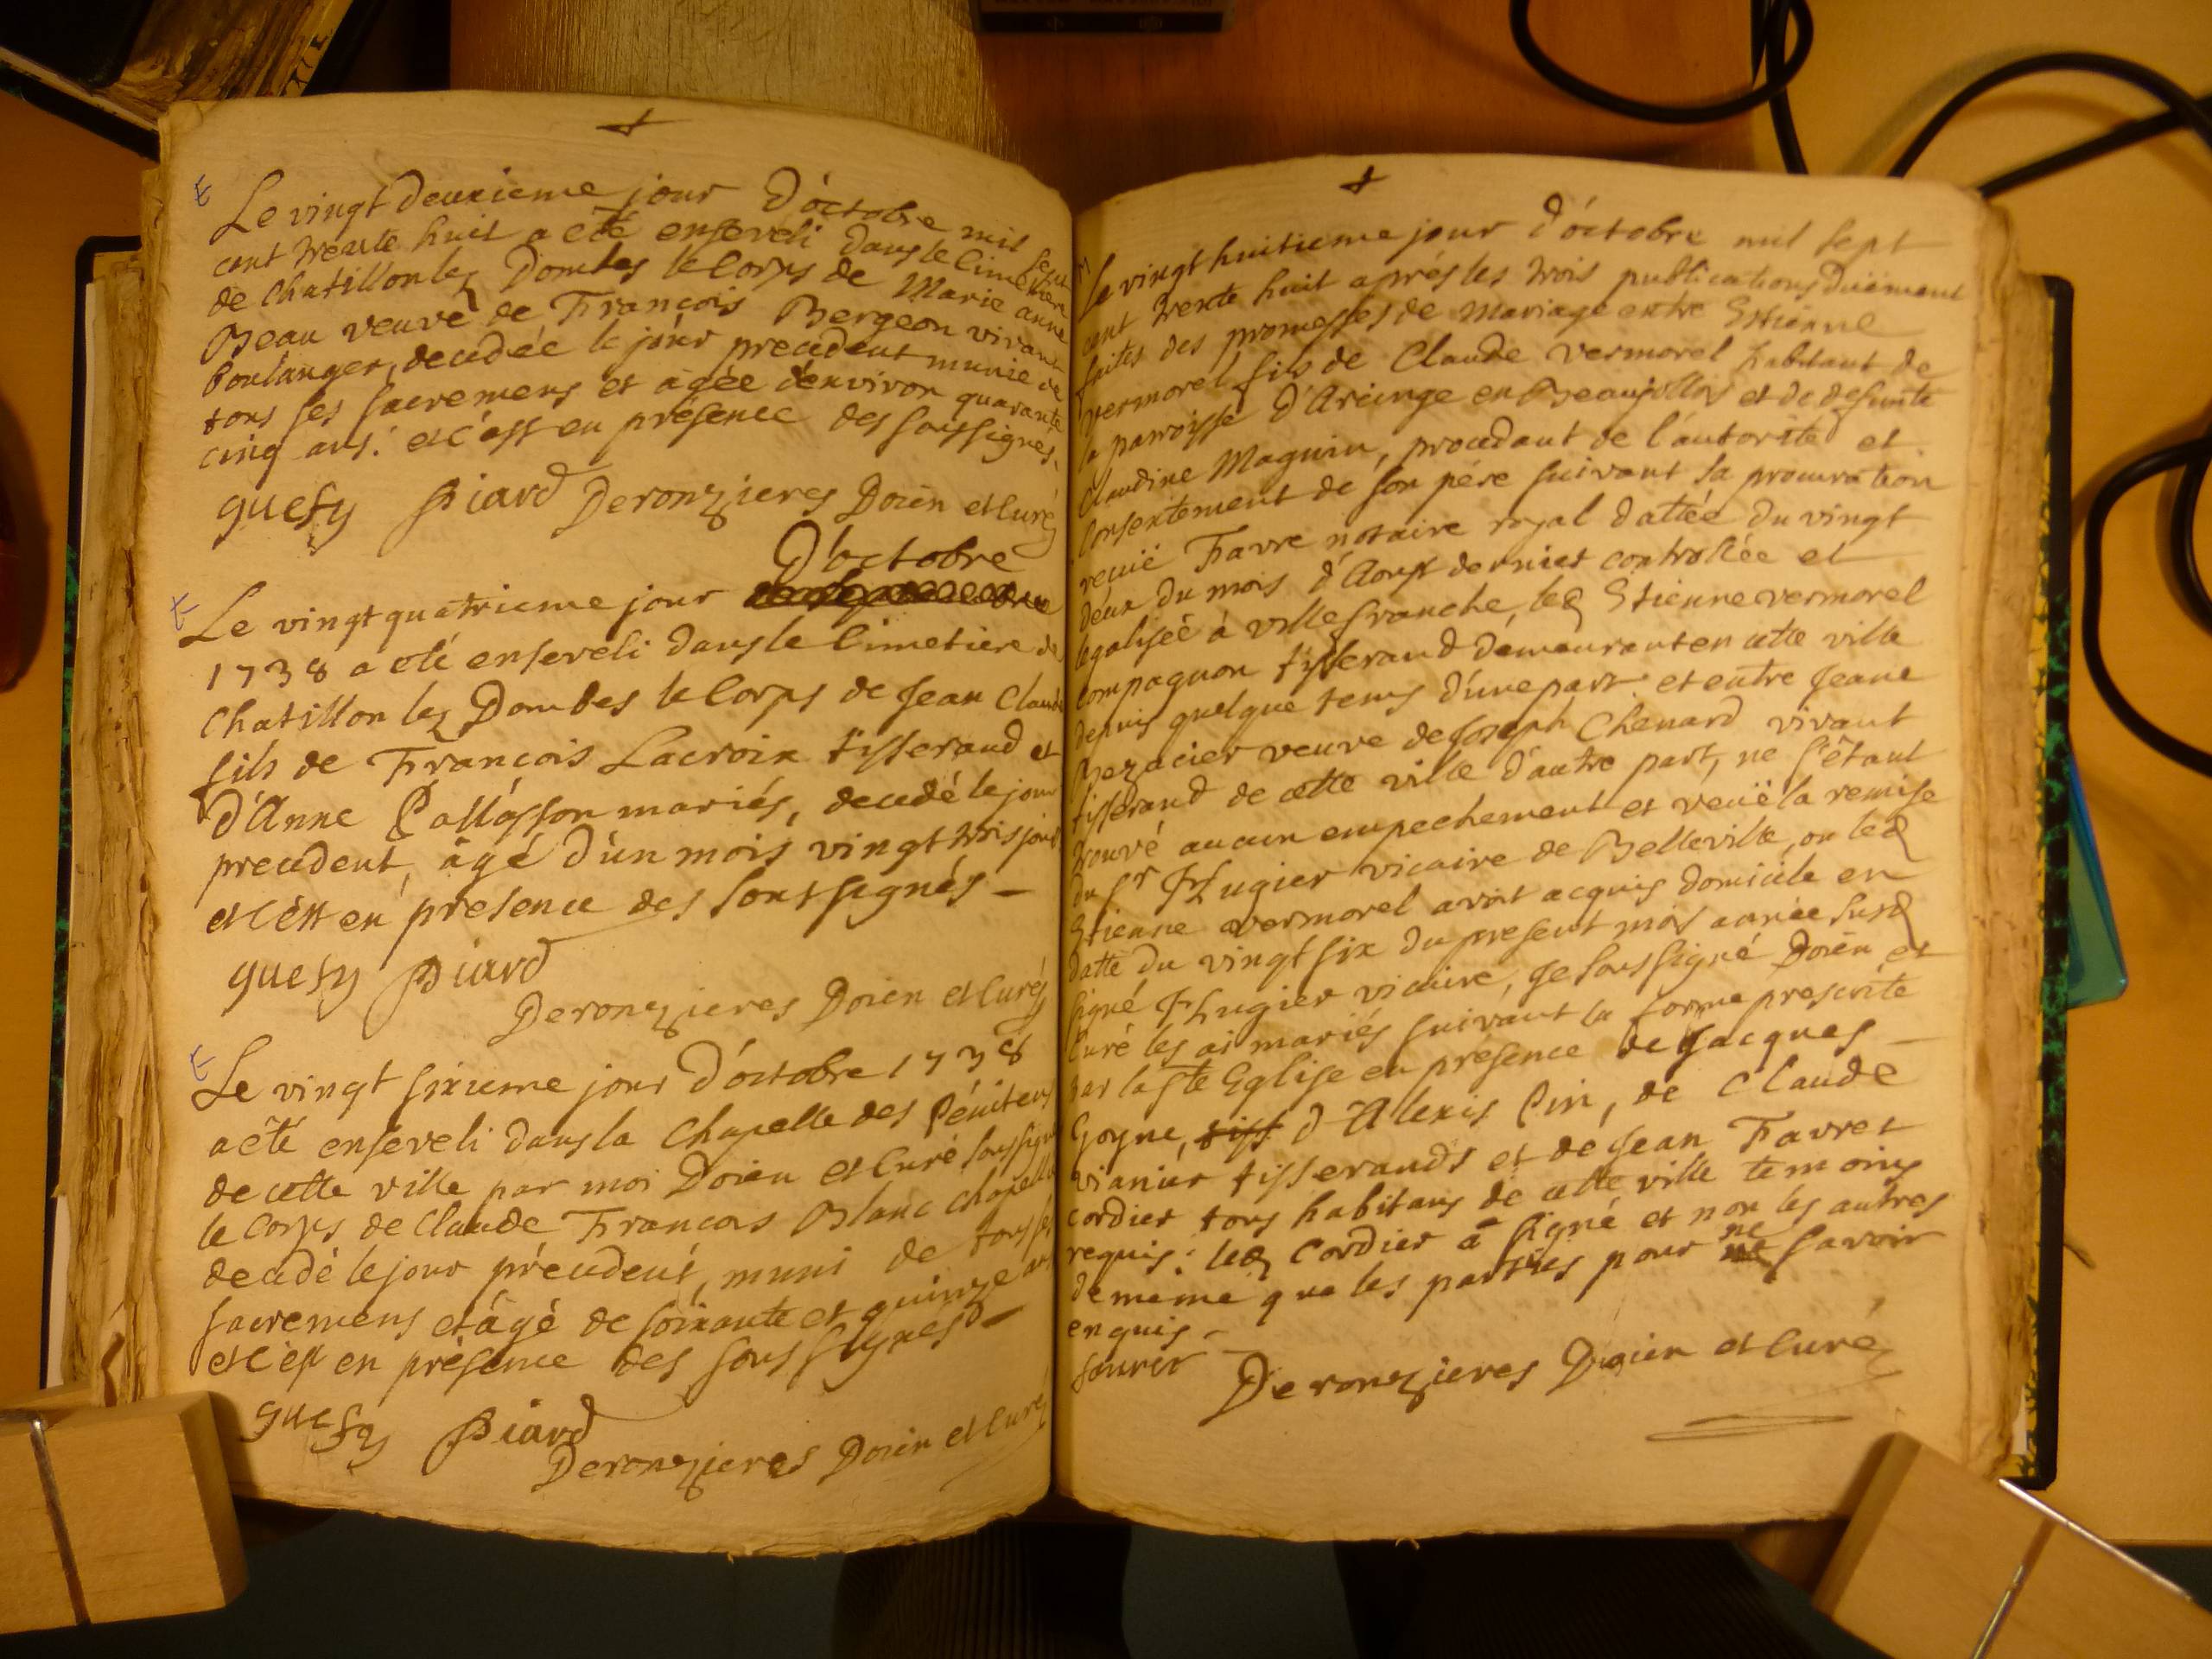 E
Le vingt deuxieme jour d'octobre mil sept
cent trente huit a eté enseveli dans le cimetiere
de Chatillon lez Dombes le Corps de Marie anne
Beau veuve de François Bergeon vivant
boulanger, decedée le jour precedent munie de
tous ses sacremens et agée denviron quarante
cinq ans. et c'est en présence des soussignés.
guesy Piard Deronzieres Doien et Curé
D'octobre
E
Le vingt quatrieme jour
1738 a eté enseveli dans le Cimetiere de
Chatillon lez Dombes le Corps de Jean Claude
fils de François Lacroix tisserand et
d'Anne Pallasson mariés, decedé le jour
precedent, âgé d'un mois vingt trois jours
et c'est en presence des soussignés —
guesy Piard
Deronzieres Doien et Curé
E
Le vingt sixieme jour d'octobre 1738
a eté enseveli dans la Chapelle des Pénitens
de cette ville par moi Doien et Curé soussigné
le Corps de Claude François Blanc chapelle
decedé le jour précedent, muni de tous ses
sacremens et âgé de soixante et quinze ans
et c'est en présence des soussignés —
guesy Piard
Deronzieres Doien et Curé
Le vingt huitieme jour d'octobre mil sept
cent trente huit aprés les trois publications duëment
faites des promesses de Mariage entre Estienne
vermorel fils de Claude vermorel habitant de
la parroisse d'Arcinge en Beaujollois et de defunte
Claudine Maguin, procedant de l'autorité et
Consentement de son pére suivant sa procuration
reçuë Favre notaire royal dattée du vingt
deux du mois d'Aoust dernier controllée et
legalisée à villefranche, led Etienne vermorel
Compagnon tisserand demeurant en cette ville
depuis quelque tems d'une part. et entre Jeane
Bezacier veuve de Joseph Chenard vivant
tisserand de cette ville d'autre part, ne s'étant
trouvé aucun empechement et veuë la remise
du Sr Flugier vicaire de Belleville, ou led
Etienne vermorel avoit acquis domicile en
datte du vingt six du present mois année susd
signé Flugier vicaire, Je soussigné Doien et
Curé les ai mariés suivant la forme prescrite
par la Ste Eglise en présence de Jacques —
Goyne, tiss d'Alexis Pin, de Claude
vianier tisserands et de Jean Favret
cordier tous habitans de cette ville temoins
requis. led Cordier a signé et non les autres
de même que les parties pour ne savoir
enquis —
Deronzieres Doien et Curé